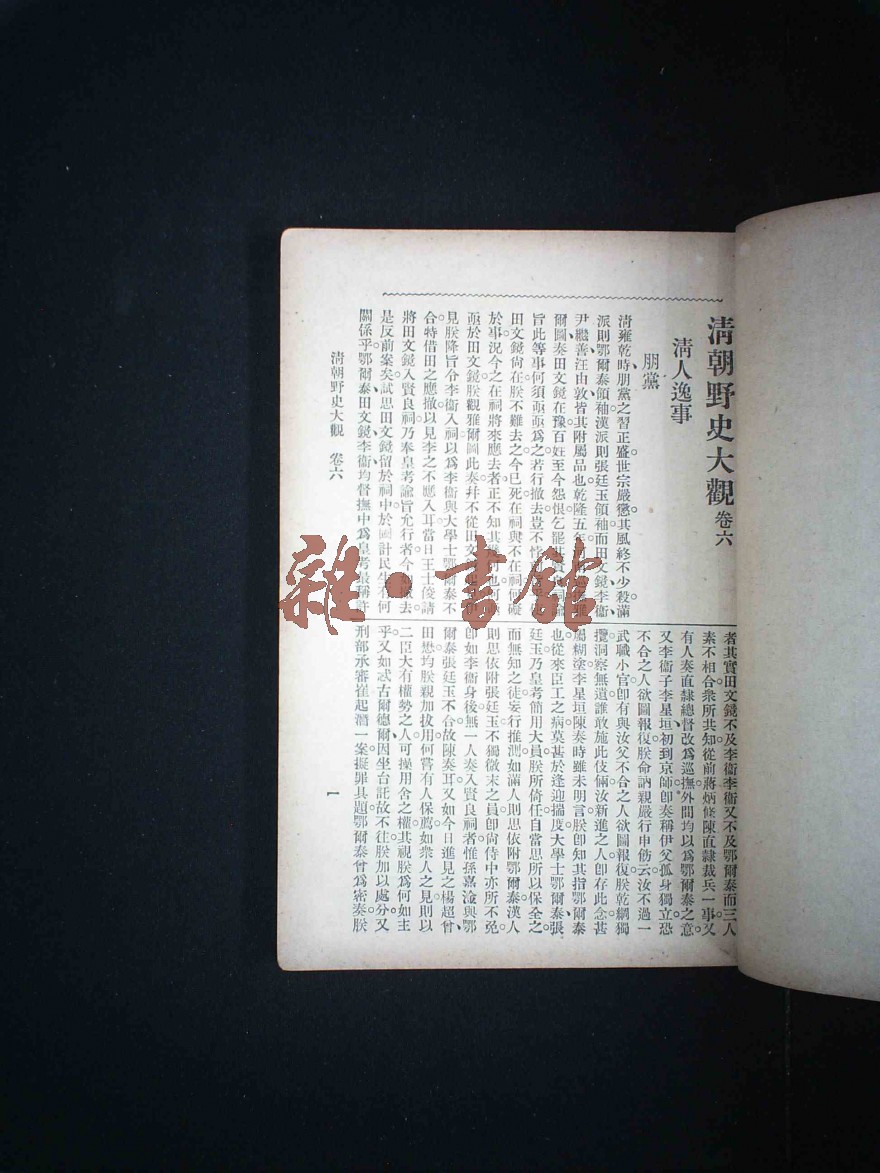 清朝野史大觀 卷六
清人逸事
朋黨
清雍乾時朋黨之習正盛世宗嚴懲其風終不少殺滿
派則鄂爾泰領袖漢派則張廷玉領袖而田文鏡李衞
尹繼善汪由敦皆其附屬品也乾隆五年
爾圖奏田文鏡在豫百姓至今怨恨乞罷
旨此等事何須亟亟爲之若行撤去豈不
田文鏡尙在朕不難去之今已死在祠與不在祠何礙
於事況今之在祠將來應去者正不知其
亟於田文鏡朕觀雅爾圖此奏幷不從田文
見朕降旨令李衞入祠以爲李衞與大學士鄂爾泰不
合特借田之應撤以見李之不應入耳當日王士俊請
將田文鏡入賢良祠乃奉皇考諭旨允行者今 撤去
是反前案矣試思田文鏡留於祠中於國計民生 何
關係乎鄂爾泰田文鏡李衞均督撫中爲皇考最稱許
者其實田文鏡不及李衞李衞又不及鄂爾泰而三人
素不相合衆所共知從前蔣炳條陳直隸裁兵一事又
有人奏直隸總督改爲巡撫外間均以爲鄂爾泰之意
又李衞子李星垣初到京師卽奏稱伊父孤身獨立恐
不合之人欲圖報復朕命訥親嚴行申飭云汝不過一
武職小官卽有與汝父不合之人欲圖報復朕乾綱獨
攬洞察無遺誰敢施此伎倆汝新進之人卽存此念甚
屬糊塗李星垣陳奏時雖未明言朕卽知其指鄂爾泰
也從來臣工之病莫甚於逢迎揣度大學士鄂爾泰張
廷玉乃皇考簡用大員朕所倚任自當思所以保全之
而無知之徒妄行推測如滿人則思依附鄂爾泰漢人
則思依附張廷玉不獨微末之員卽尙侍中亦所不免
卽如李衞身後無一人奏入賢良祠者惟孫嘉淦與鄂
爾泰張廷玉不合故陳奏耳又如今日進見之楊超曾
田懋均朕親加拔用何嘗有人保薦如衆人之見則以
二臣大有權勢之人可操用舍之權其視朕爲何如主
乎又如忒古爾德爾因坐台託故不往朕加以處分又
刑部承審崔起潛一案擬罪具題鄂爾泰曾爲密奏朕
清朝野史大觀 卷六
一
雜·書館